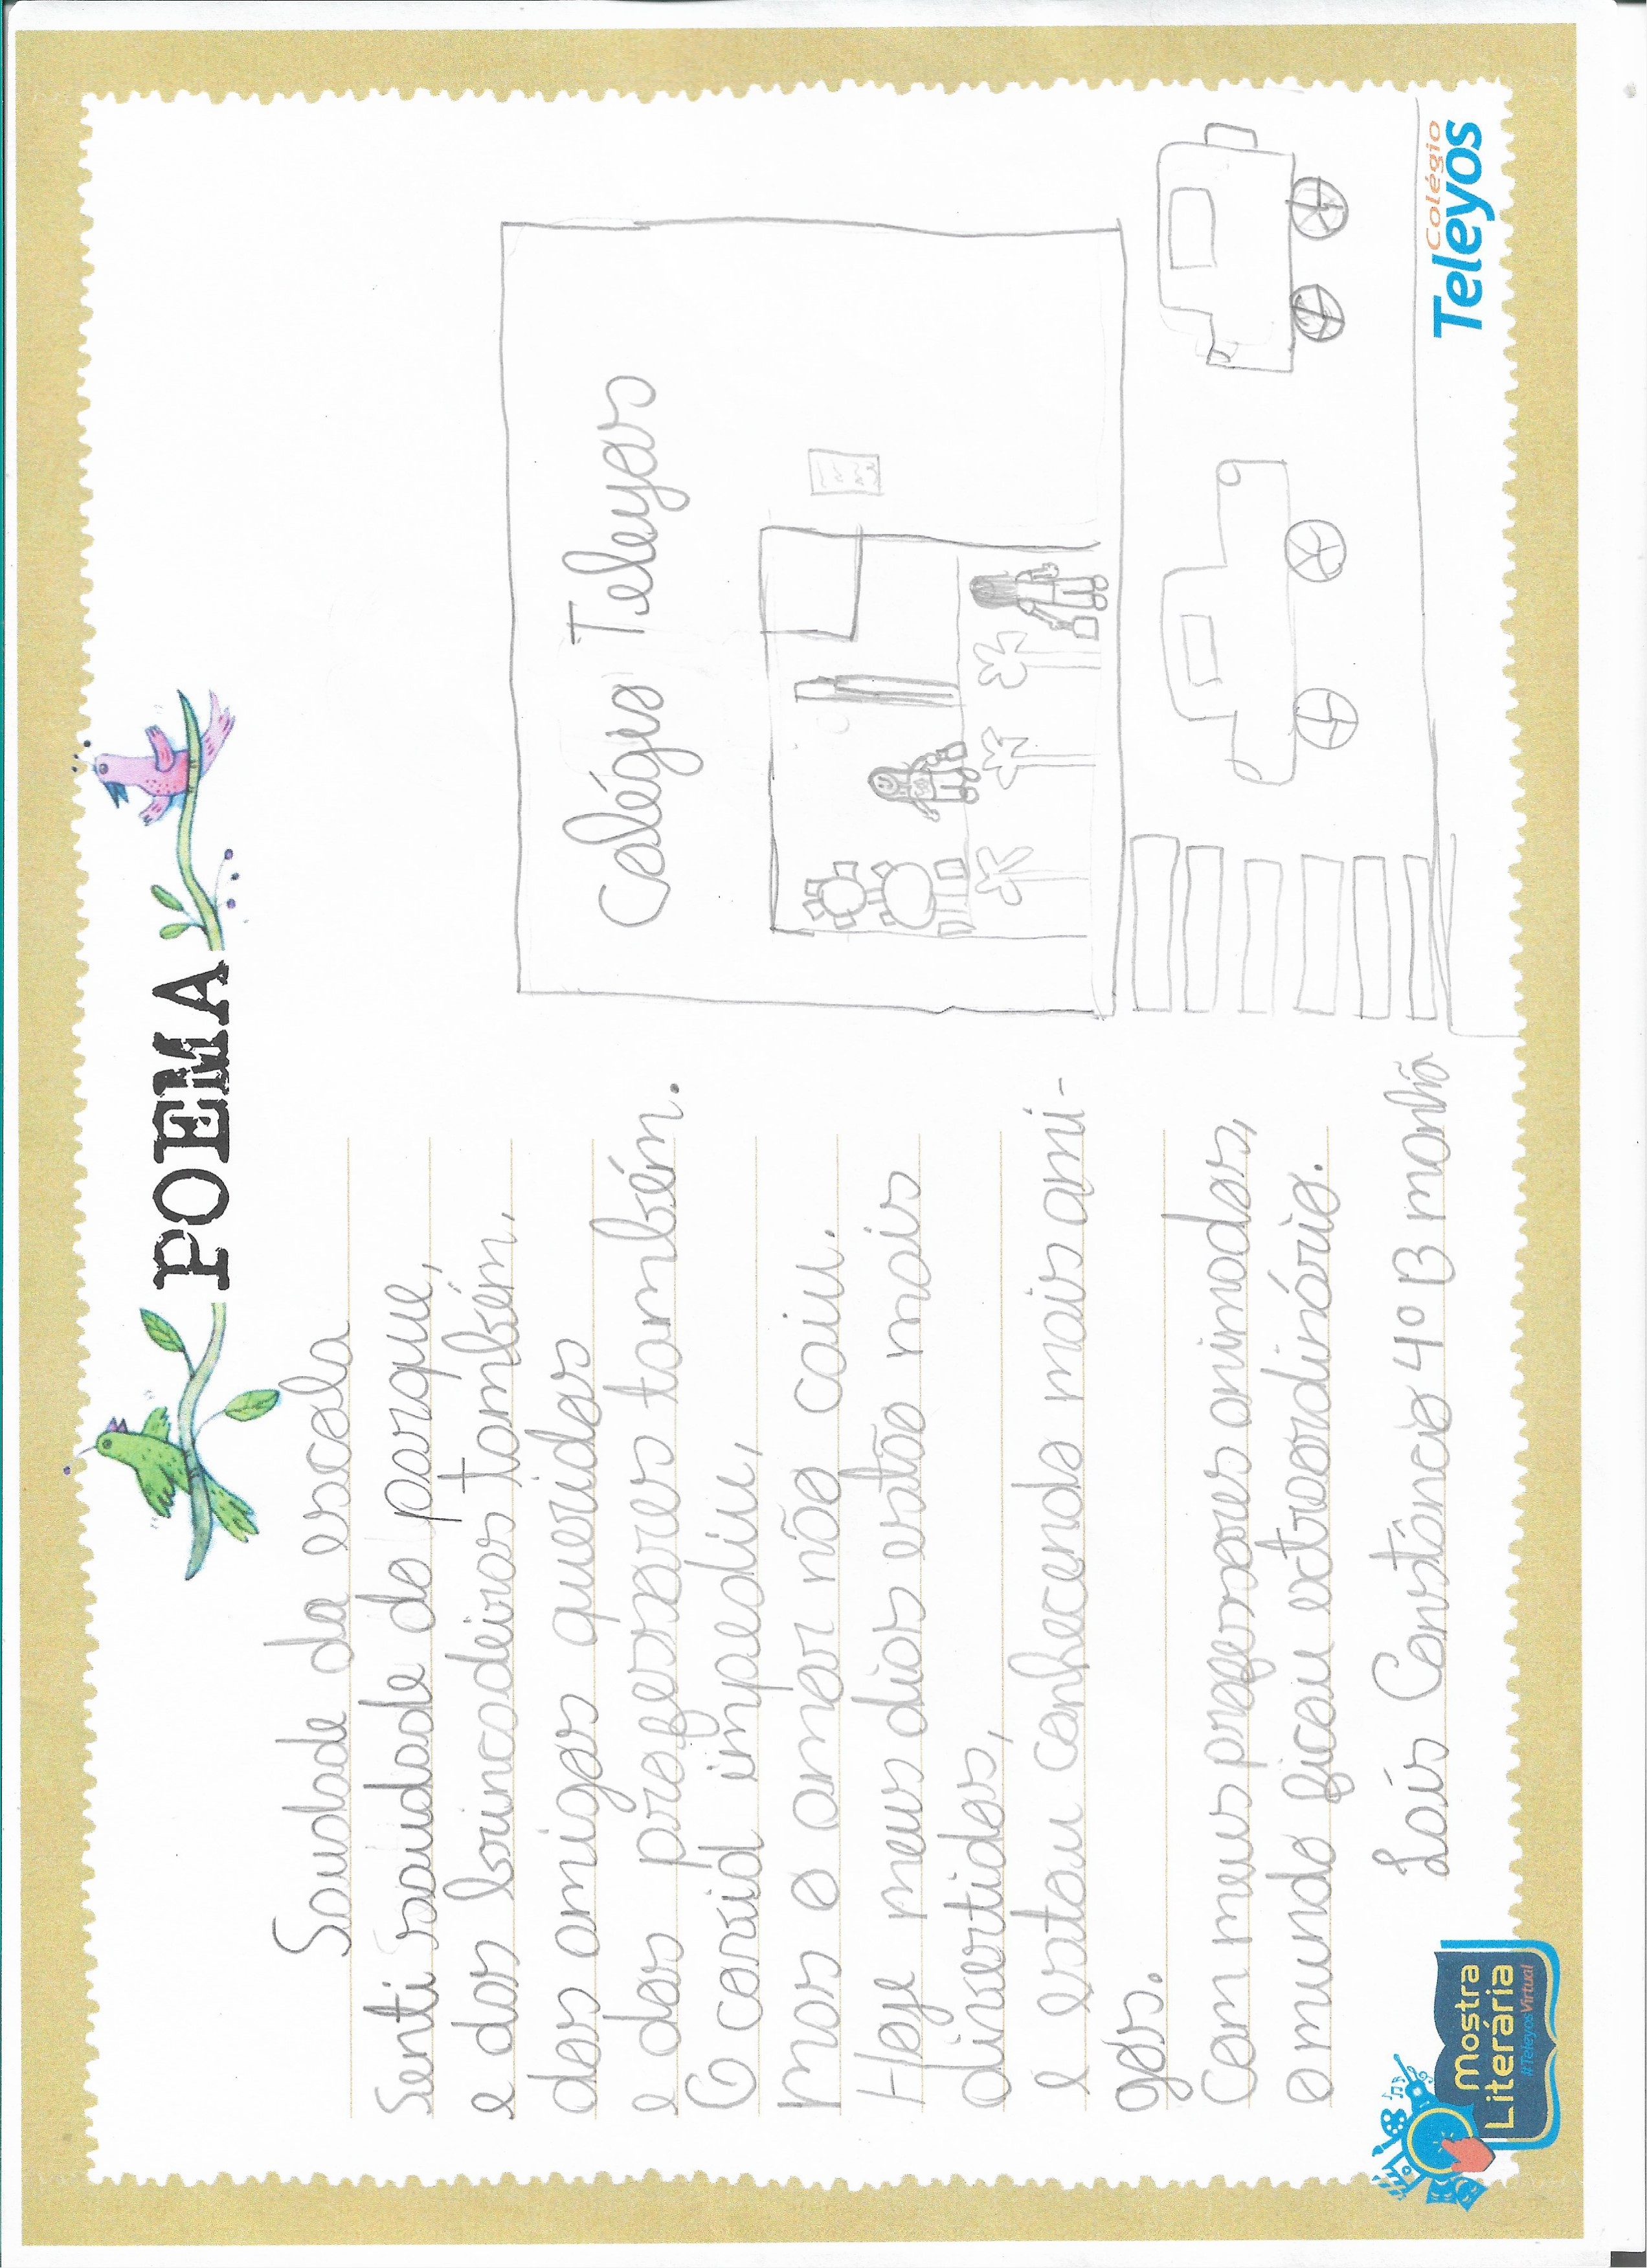 POEMA
Saudade da escola
Senti saudade do parque,
e das brincadeiras também,
dos amigos queridos
e dos professores também.
O covid impediu,
mas o amor não caiu.
Hoje meus dias estão mais
divertidos,
e estou conhecendo mais ami-
gos.
Com meus professores animados,
o mundo ficou extraordinário.
Laís Constâncio 4º B manhã
Colégio Teleyos
Mostra
Literária
#TeleyosVirtual
Colégio
Teleyos